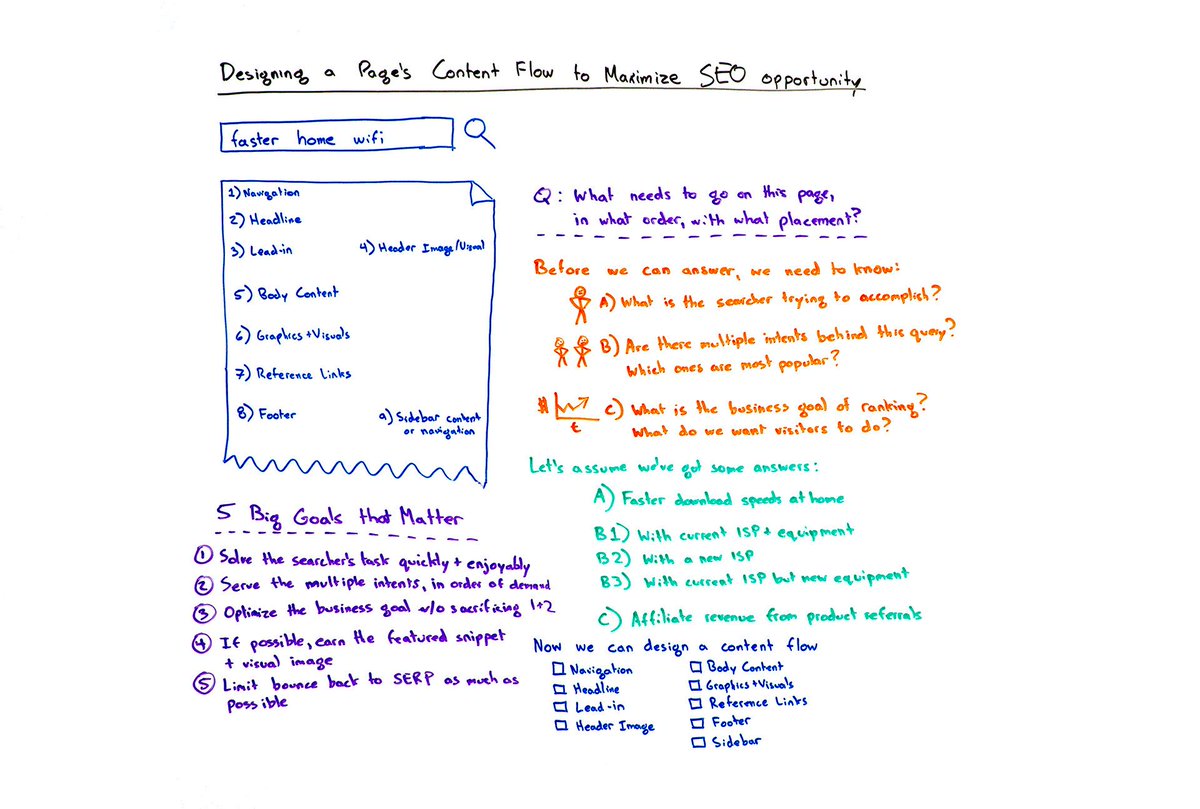 Designing a Page's Content Flow to Maximize SEO opportunity
faster home wifi
1) Navigation
2) Headline
3) Lead-in
4) Header Image/Visual
5) Body Content
6) Graphics + Visuals
7) Reference Links
8) Footer
9) Sidebar content
or navigation
5 Big Goals that Matter
1 Solve the searcher's task quickly + enjoyably
2 Serve the multiple intents, in order of demand
3 Optimize the business goal w/o sacrificing 1+2
4 If possible, earn the featured snippet
+ visual image
5 Limit bounce back to SERP as much as
possible
Q: What needs to go on this page,
in what order, with what placement?
Before we can answer, we need to know:
A) What is the searcher trying to accomplish?
B) Are there multiple intents behind this query?
Which ones are most popular?
$ t
C) What is the business goal of ranking?
What do we want visitors to do?
Let's assume we've got some answers:
A) Faster download speeds at home
B1) With current ISP + equipment
B2) With a new ISP
B3) With current ISP but new equipment
C) Affiliate revenue from product referrals
Now we can design a content flow
Navigation
Headline
Lead-in
Header Image
Body Content
Graphics + Visuals
Reference Links
Footer
Sidebar